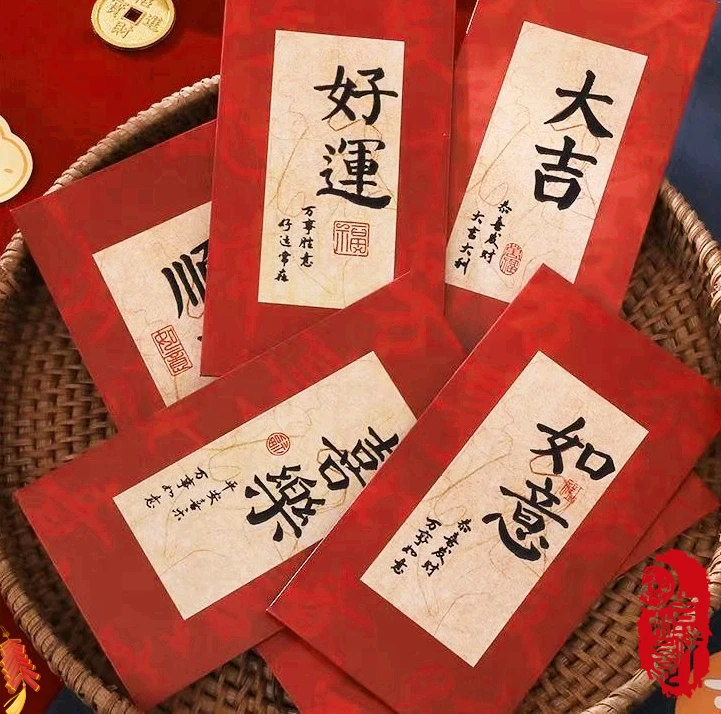 好運
万事胜意
好运常在
福
大吉
恭喜发财
大吉大利
順
喜樂
平安喜乐
万事如意
如意
恭喜发财
万事如意